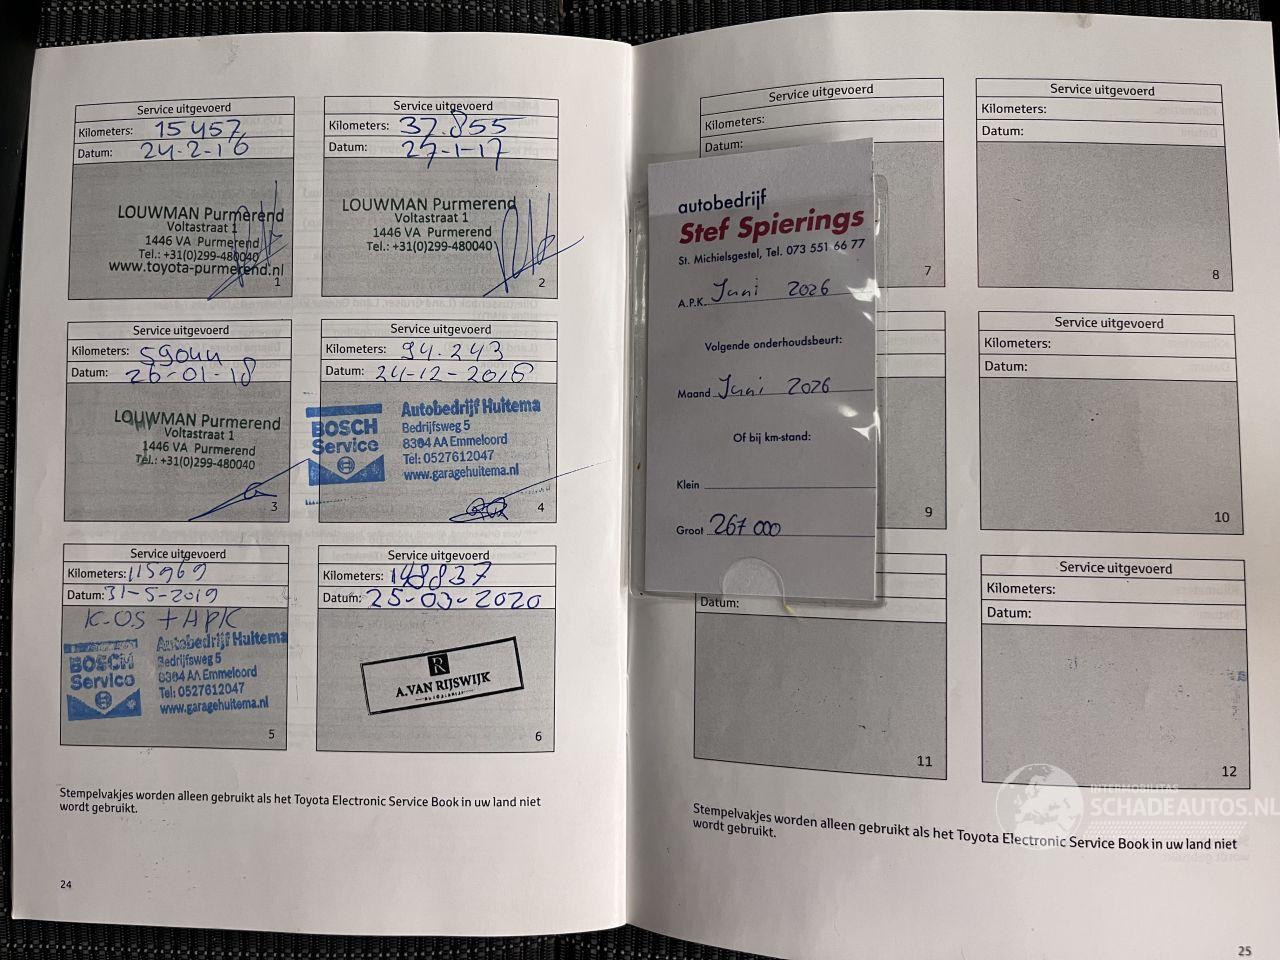 Service uitgevoerd
Kilometers: 15457
Datum: 24-2-16
LOUWMAN Purmerend
Voltastraat 1
1446 VA Purmerend
Tel.: +31(0)299-480040
www.toyota-purmerend.nl
1
Service uitgevoerd
Kilometers: 37.855
Datum: 27-1-17
LOUWMAN Purmerend
Voltastraat 1
1446 VA Purmerend
Tel.: +31(0)299-480040
2
Service uitgevoerd
Kilometers: 59044
Datum: 26-01-18
LOUWMAN Purmerend
Voltastraat 1
1446 VA Purmerend
Tel.: +31(0)299-480040
3
Service uitgevoerd
Kilometers: 94.243
Datum: 24-12-2018
BOSCH
Service
Autobedrijf Huitema
Bedrijfsweg 5
8304 AA Emmeloord
Tel: 0527612047
www.garagehuitema.nl
4
Service uitgevoerd
Kilometers: 115969
Datum: 31-5-2019
K.O.S + APK
BOSCH
Service
Autobedrijf Huitema
Bedrijfsweg 5
8304 AA Emmeloord
Tel: 0527612047
www.garagehuitema.nl
5
Service uitgevoerd
Kilometers: 148837
Datum: 25-03-2020
R
A.VAN RIJSWIJK
6
Stempelvakjes worden alleen gebruikt als het Toyota Electronic Service Book in uw land niet
wordt gebruikt.
24
Service uitgevoerd
Kilometers:
Datum:
7
Service uitgevoerd
Kilometers:
Datum:
8
autobedrijf
Stef Spierings
St. Michielsgestel, Tel. 073 551 66 77
A.P.K. Juni 2026
Volgende onderhoudsbeurt:
Maand Juni 2026
Of bij km-stand:
Klein
Groot 267 000
9
Service uitgevoerd
Kilometers:
Datum:
10
Datum:
11
Service uitgevoerd
Kilometers:
Datum:
12
Stempelvakjes worden alleen gebruikt als het Toyota Electronic Service Book in uw land niet
wordt gebruikt.
25
INTERMOBILITAS
SCHADEAUTOS.NL